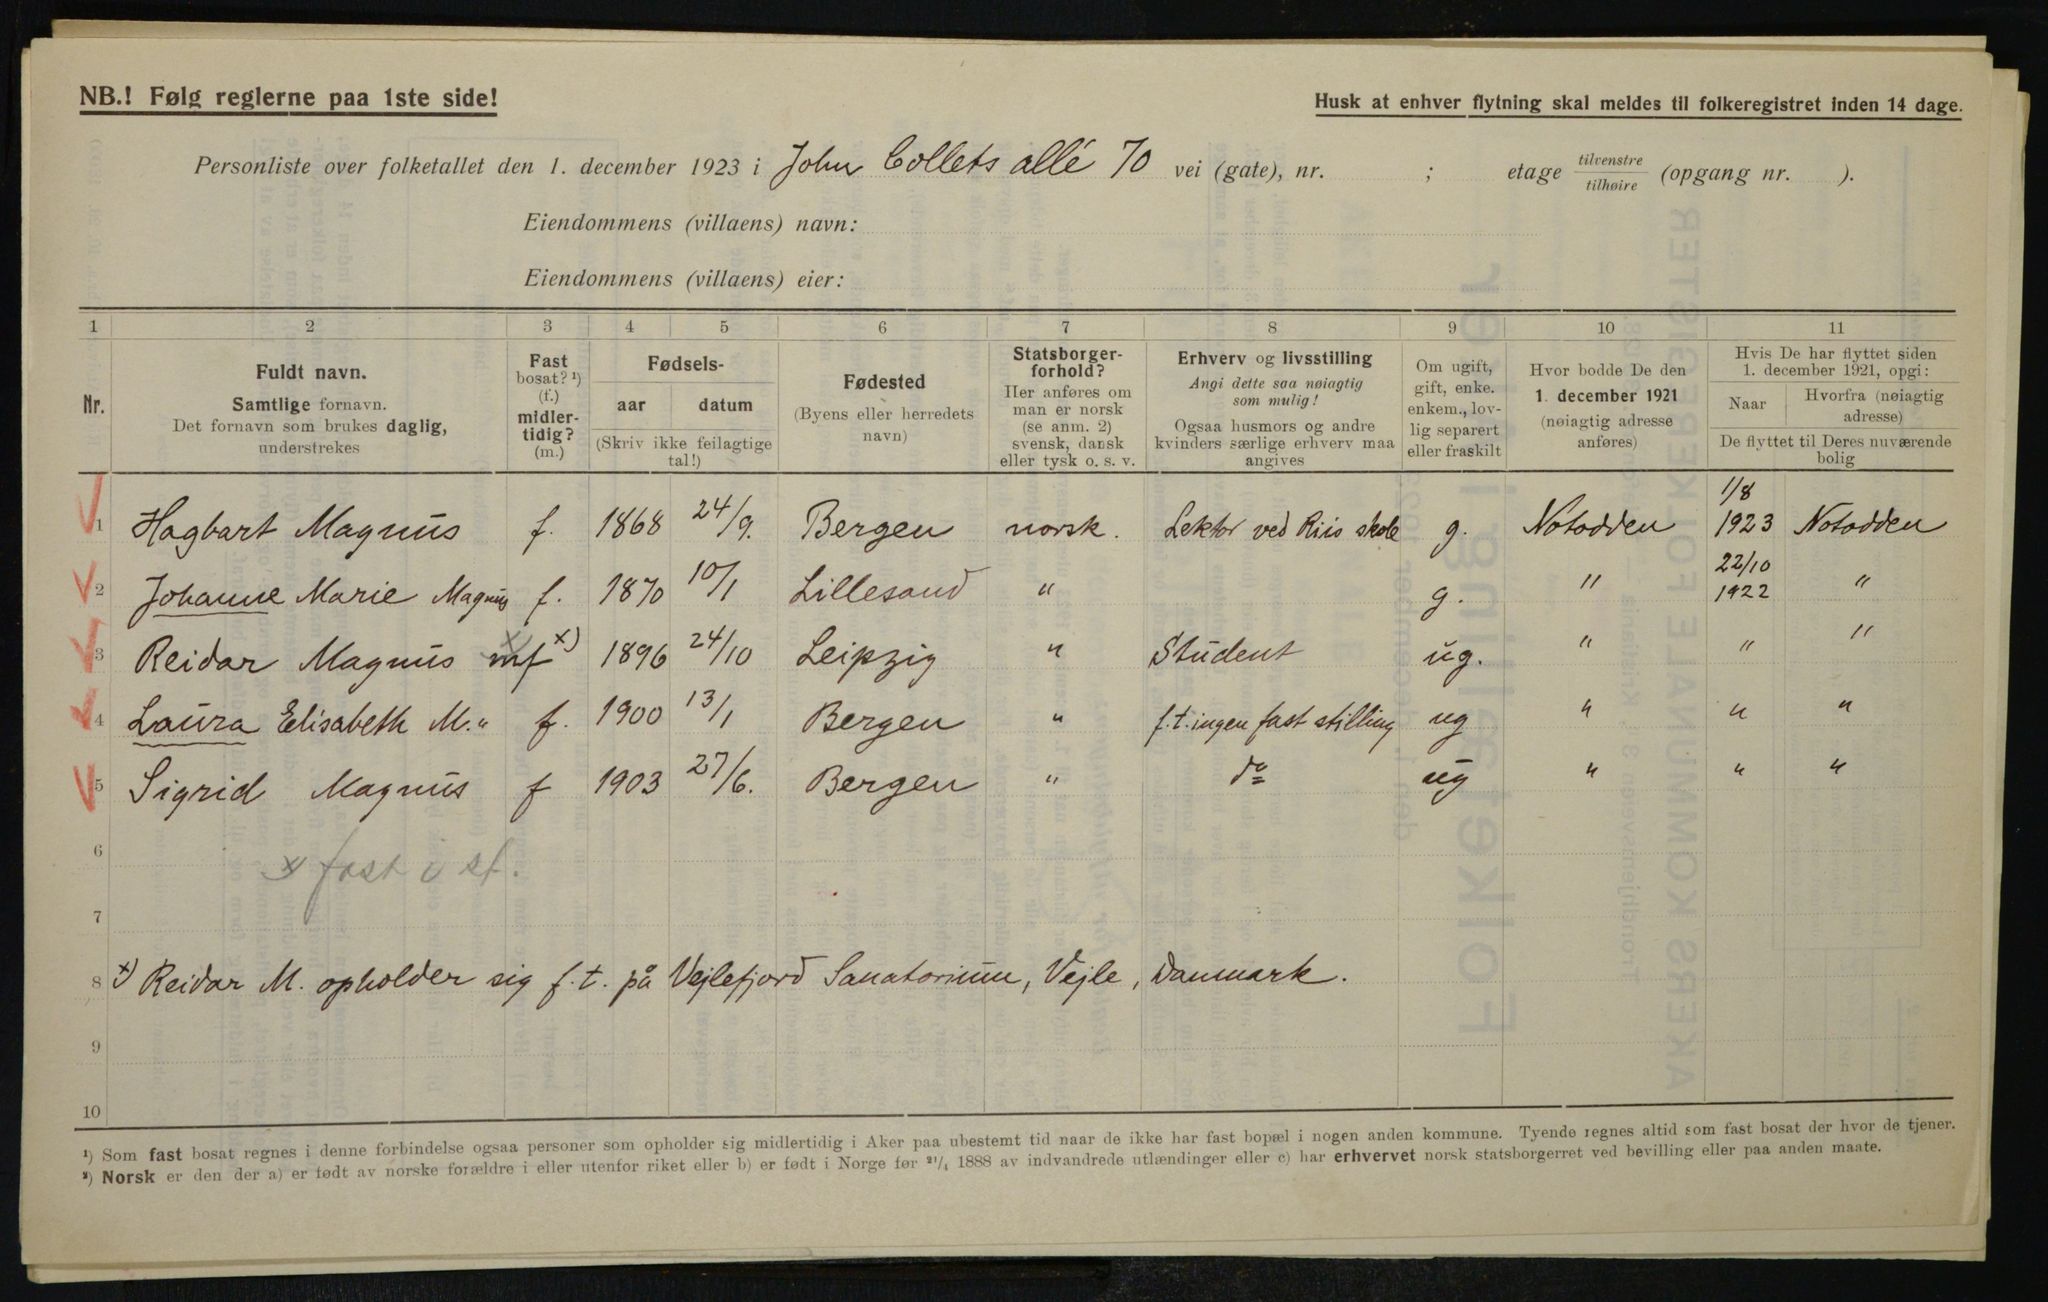 NB.! Følg reglerne paa 1ste side!
Husk at enhver flytning skal meldes til folkeregistret inden 14 dage.
Personliste over folketallet den 1. december 1923 i John Collets allé 70 vei (gate), nr. ; etage tilvenstre/tilhøire (opgang nr. ).
Eiendommens (villaens) navn:
Eiendommens (villaens) eier:
1 2 3 4 5 6 7 8 9 10 11
Nr.
Fuldt navn.
Samtlige fornavn.
Det fornavn som brukes daglig,
understrekes
Fast
bosat? ¹)
(f.)
midler-
tidig?
(m.)
Fødsels-
aar datum
(Skriv ikke feilagtige
tal!)
Fødested
(Byens eller herredets
navn)
Statsborger-
forhold?
Her anføres om
man er norsk
(se anm. 2)
svensk, dansk
eller tysk o. s. v.
Erhverv og livsstilling
Angi dette saa nøiagtig
som mulig!
Ogsaa husmors og andre
kvinders særlige erhverv maa
angives
Om ugift,
gift, enke.
enkem., lov-
lig separert
eller fraskilt
Hvor bodde De den
1. december 1921
(nøiagtig adresse
anføres)
Hvis De har flyttet siden
1. december 1921, opgi:
Naar
Hvorfra (nøiagtig
adresse)
De flyttet til Deres nuværende
bolig
1 Hagbart Magnus f. 1868 24/9. Bergen norsk. Lektor ved Riis skole g. Notodden 1/8 1923 Notodden
2 Johanne Marie Magnus f. 1870 10/1 Lillesand " g. " 22/10 1922 "
3 Reidar Magnus mf x) 1896 24/10 Leipzig " Student ug. " " "
4 Laura Elisabeth M. " f. 1900 13/1 Bergen " f.t. ingen fast stilling ug " " "
5 Sigrid Magnus f 1903 27/6. Bergen " do ug " " "
6 x) fast i st.
7
8 x) Reidar M. opholder sig f.t. på Vejlefjord Sanatorium, Vejle, Danmark.
9
10
¹) Som fast bosat regnes i denne forbindelse ogsaa personer som opholder sig midlertidig i Aker paa ubestemt tid naar de ikke har fast bopæl i nogen anden kommune. Tyende regnes altid som fast bosat der hvor de tjener.
²) Norsk er den der a) er født av norske forældre i eller utenfor riket eller b) er født i Norge før 21/4 1888 av indvandrede utlændinger eller c) har erhvervet norsk statsborgerret ved bevilling eller paa anden maate.